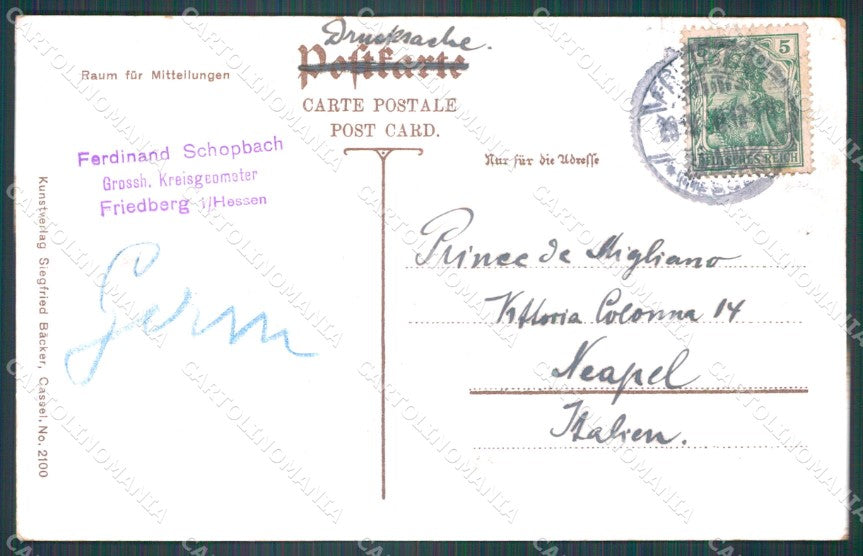 Drucksache.
Postkarte
CARTE POSTALE
POST CARD.
Raum für Mitteilungen
Nur für die Adresse
5
DEUTSCHES REICH
Ferdinand Schopbach
Grossh. Kreisgeometer
Friedberg i/Hessen
Germ
Prince de Migliano
Vittoria Colonna 14
Neapel
Italien.
Kunstverlag Siegfried Bäcker, Cassel, No. 2100
CARTOLINOMANIA